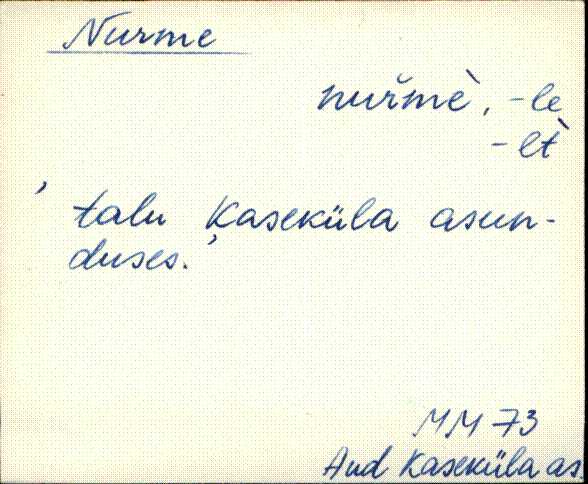 Nurme
nuřmè, -le
-lt̀
talu Kaseküla asun-
duses.
MM 73
Aud Kaseküla as.